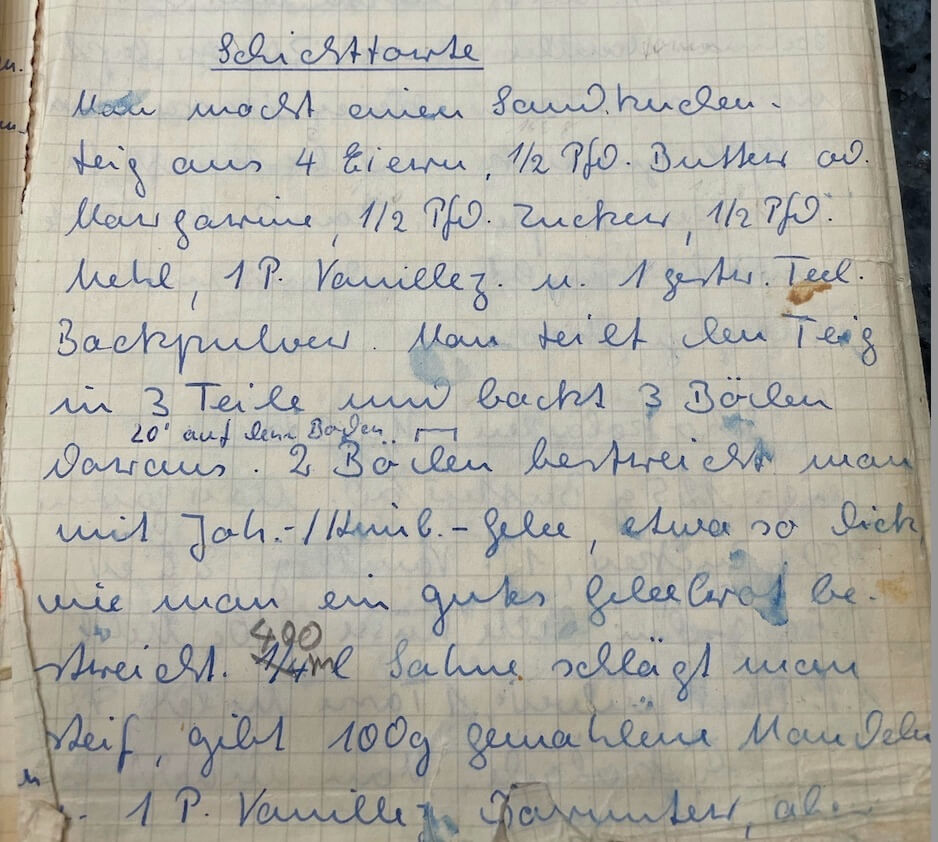 Schichttorte
Man macht einen Sandkuchen-
teig aus 4 Eiern, 1/2 Pfd. Butter od.
Margarine, 1/2 Pfd. Zucker, 1/2 Pfd.
Mehl, 1 P. Vanillez. u. 1 gestr. Teel.
Backpulver. Man teilt den Teig
in 3 Teile und backt 3 Böden
20' auf dem Boden
daraus. 2 Böden bestreicht man
mit Joh.-/Himb.-Gelee, etwa so dick,
wie man ein gutes Geleebrot be-
400
streicht. 1/4 ml Sahne schlägt man
steif, gibt 100g gemahlene Mandeln
1 P. Vanillez. darunter,